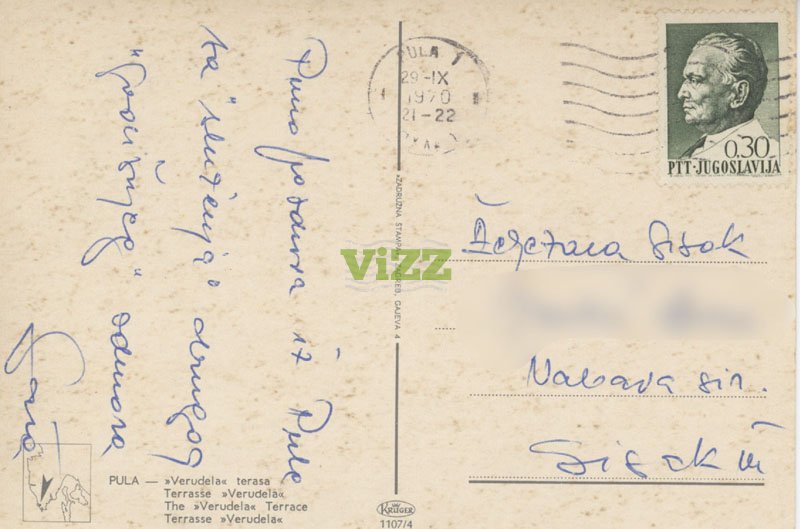 Puno pozdrava iz Pule
sa "služenja" drugog
"godišnjeg" odmora
PULA 1
29-IX
1970
21-22
0.30
PTT-JUGOSLAVIJA
Željezara Sisak
Nabava sir.
Sisak III
»ZADRUŽNA ŠTAMPA« ZAGREB, GAJEVA 4
ViZZ
PULA — »Verudela« terasa
Terrasse »Verudela«
The »Verudela« Terrace
Terrasse »Verudela«
KRÜGER
1107/4